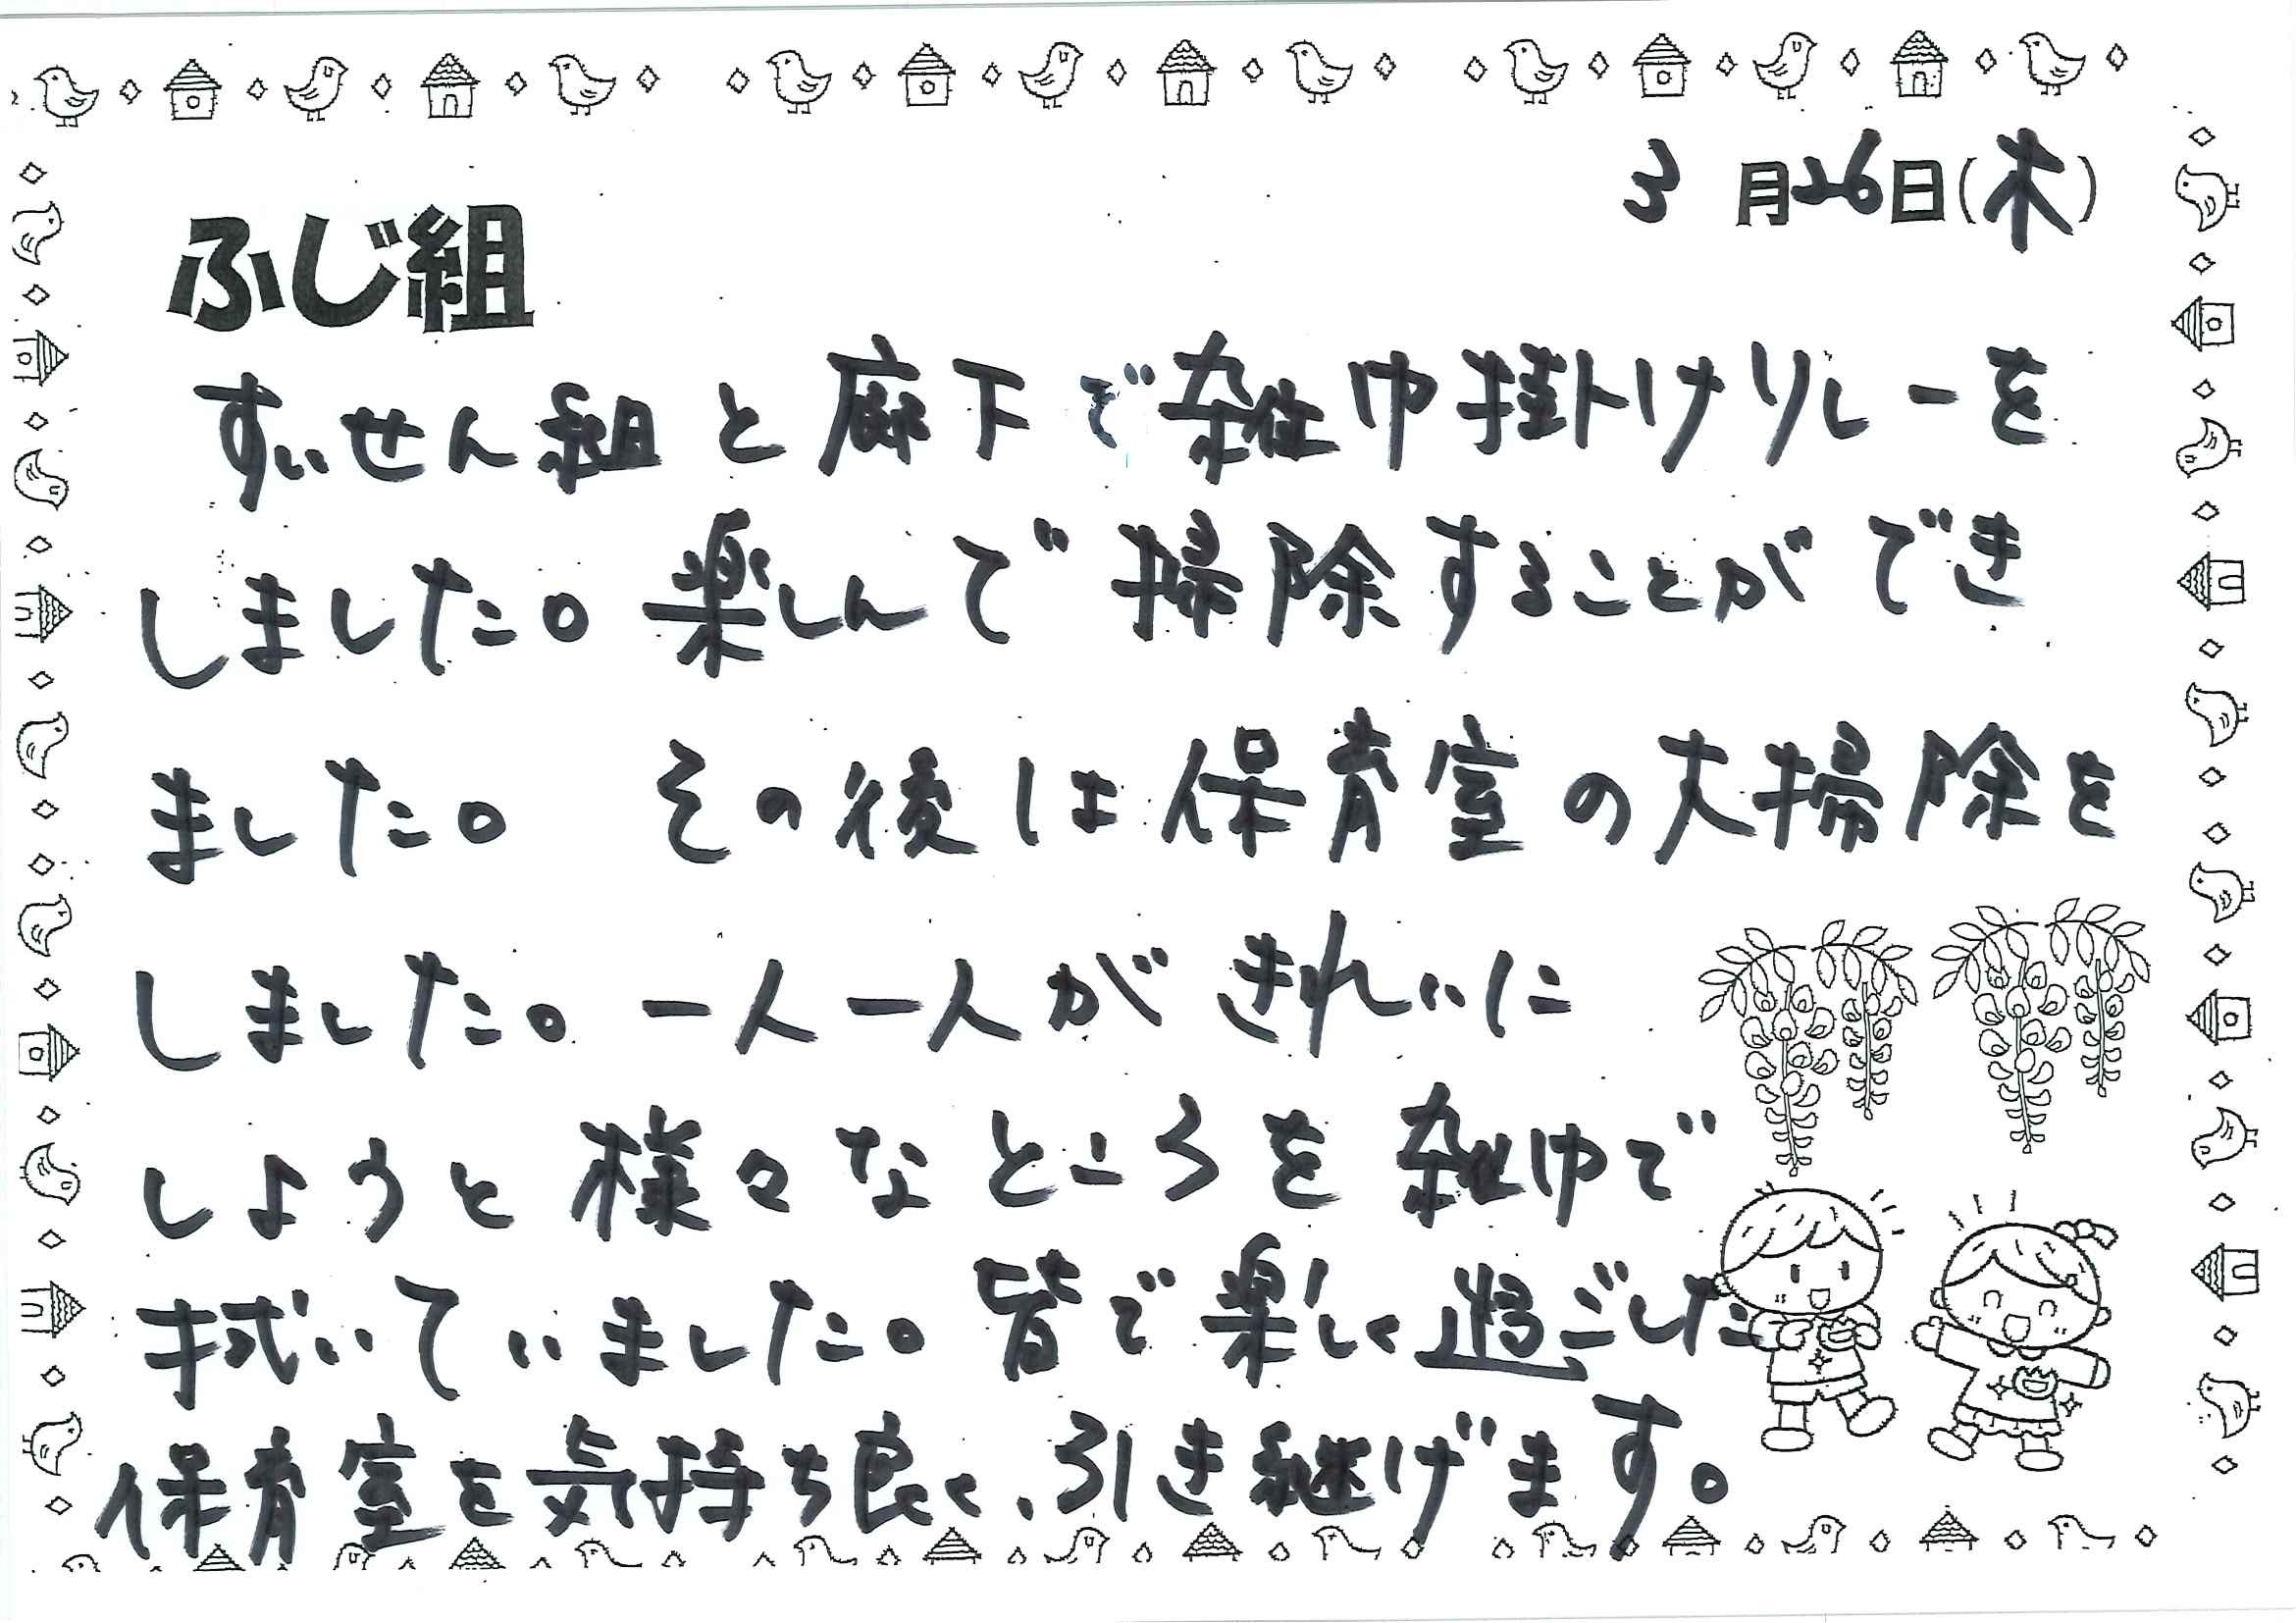 3月26日(木)
ふじ組
すいせん組と廊下で雑巾掛けリレーを
しました。楽しんで掃除することができ
ました。その後は保育室の大掃除を
しました。一人一人がきれいに
しようと様々なところを雑巾で
拭いていました。皆で楽しく過ごした
保育室を気持ち良く、引き継げます。